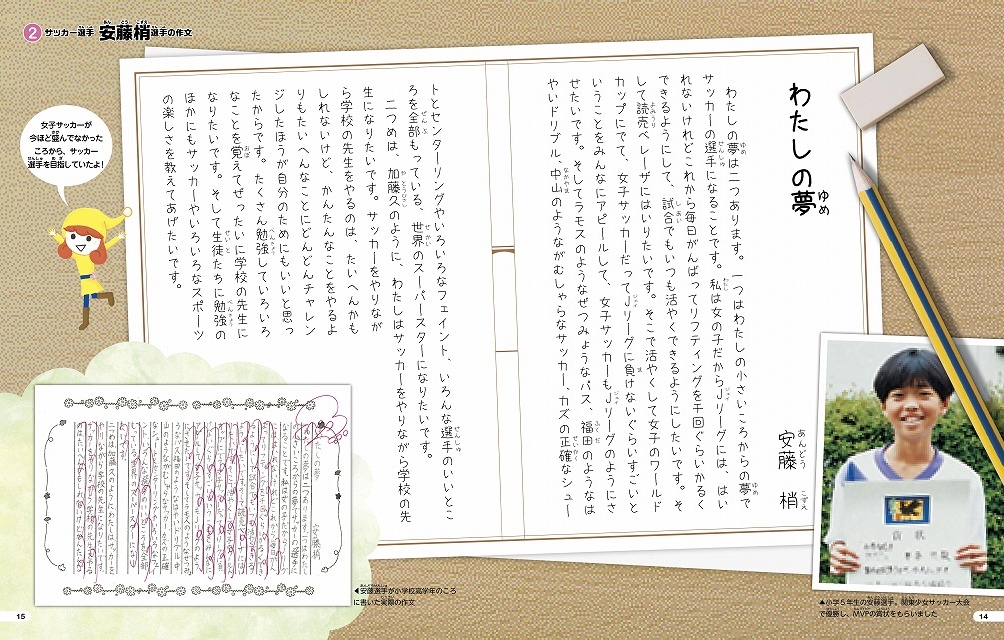 2 サッカー選手 安藤梢選手の作文
わたしの夢
安藤 梢
わたしの夢は二つあります。一つはわたしの小さいころからの夢で
サッカーの選手になることです。私は女の子だからJリーグには、はい
れないけれどこれから毎日がんばってリフティングを千回ぐらいかるく
できるようにして、試合でもいつも活やくできるようにしたいです。そ
して読売ベレーザにはいりたいです。そこで活やくして女子のワールド
カップにでて、女子サッカーだってJリーグに負けないぐらいすごいと
いうことをみんなにアピールして、女子サッカーもJリーグのようにさ
せたいです。そしてラモスのようなぜつみょうなパス、福田のようなは
やいドリブル、中山のようながむしゃらなサッカー、カズの正確なシュー
トとセンターリングやいろいろなフェイント、いろんな選手のいいとこ
ろを全部もっている、世界のスーパースターになりたいです。
二つめは、加藤久のように、わたしはサッカーをやりながら学校の先
生になりたいです。サッカーをやりなが
ら学校の先生をやるのは、たいへんかも
しれないけど、かんたんなことをやるよ
りもたいへんなことにどんどんチャレン
ジしたほうが自分のためにもいいと思っ
たからです。たくさん勉強していろいろ
なことを覚えてぜったいに学校の先生に
なりたいです。そして生徒たちに勉強の
ほかにもサッカーやいろいろなスポーツ
の楽しさを教えてあげたいです。
女子サッカーが
今ほど盛んでなかった
ころから、サッカー
選手を目指していたよ!
◀安藤選手が小学校高学年のころ
に書いた実際の作文
賞状
▲小学5年生の安藤選手。関東少女サッカー大会
で優勝し、MVPの賞状をもらいました
15
14